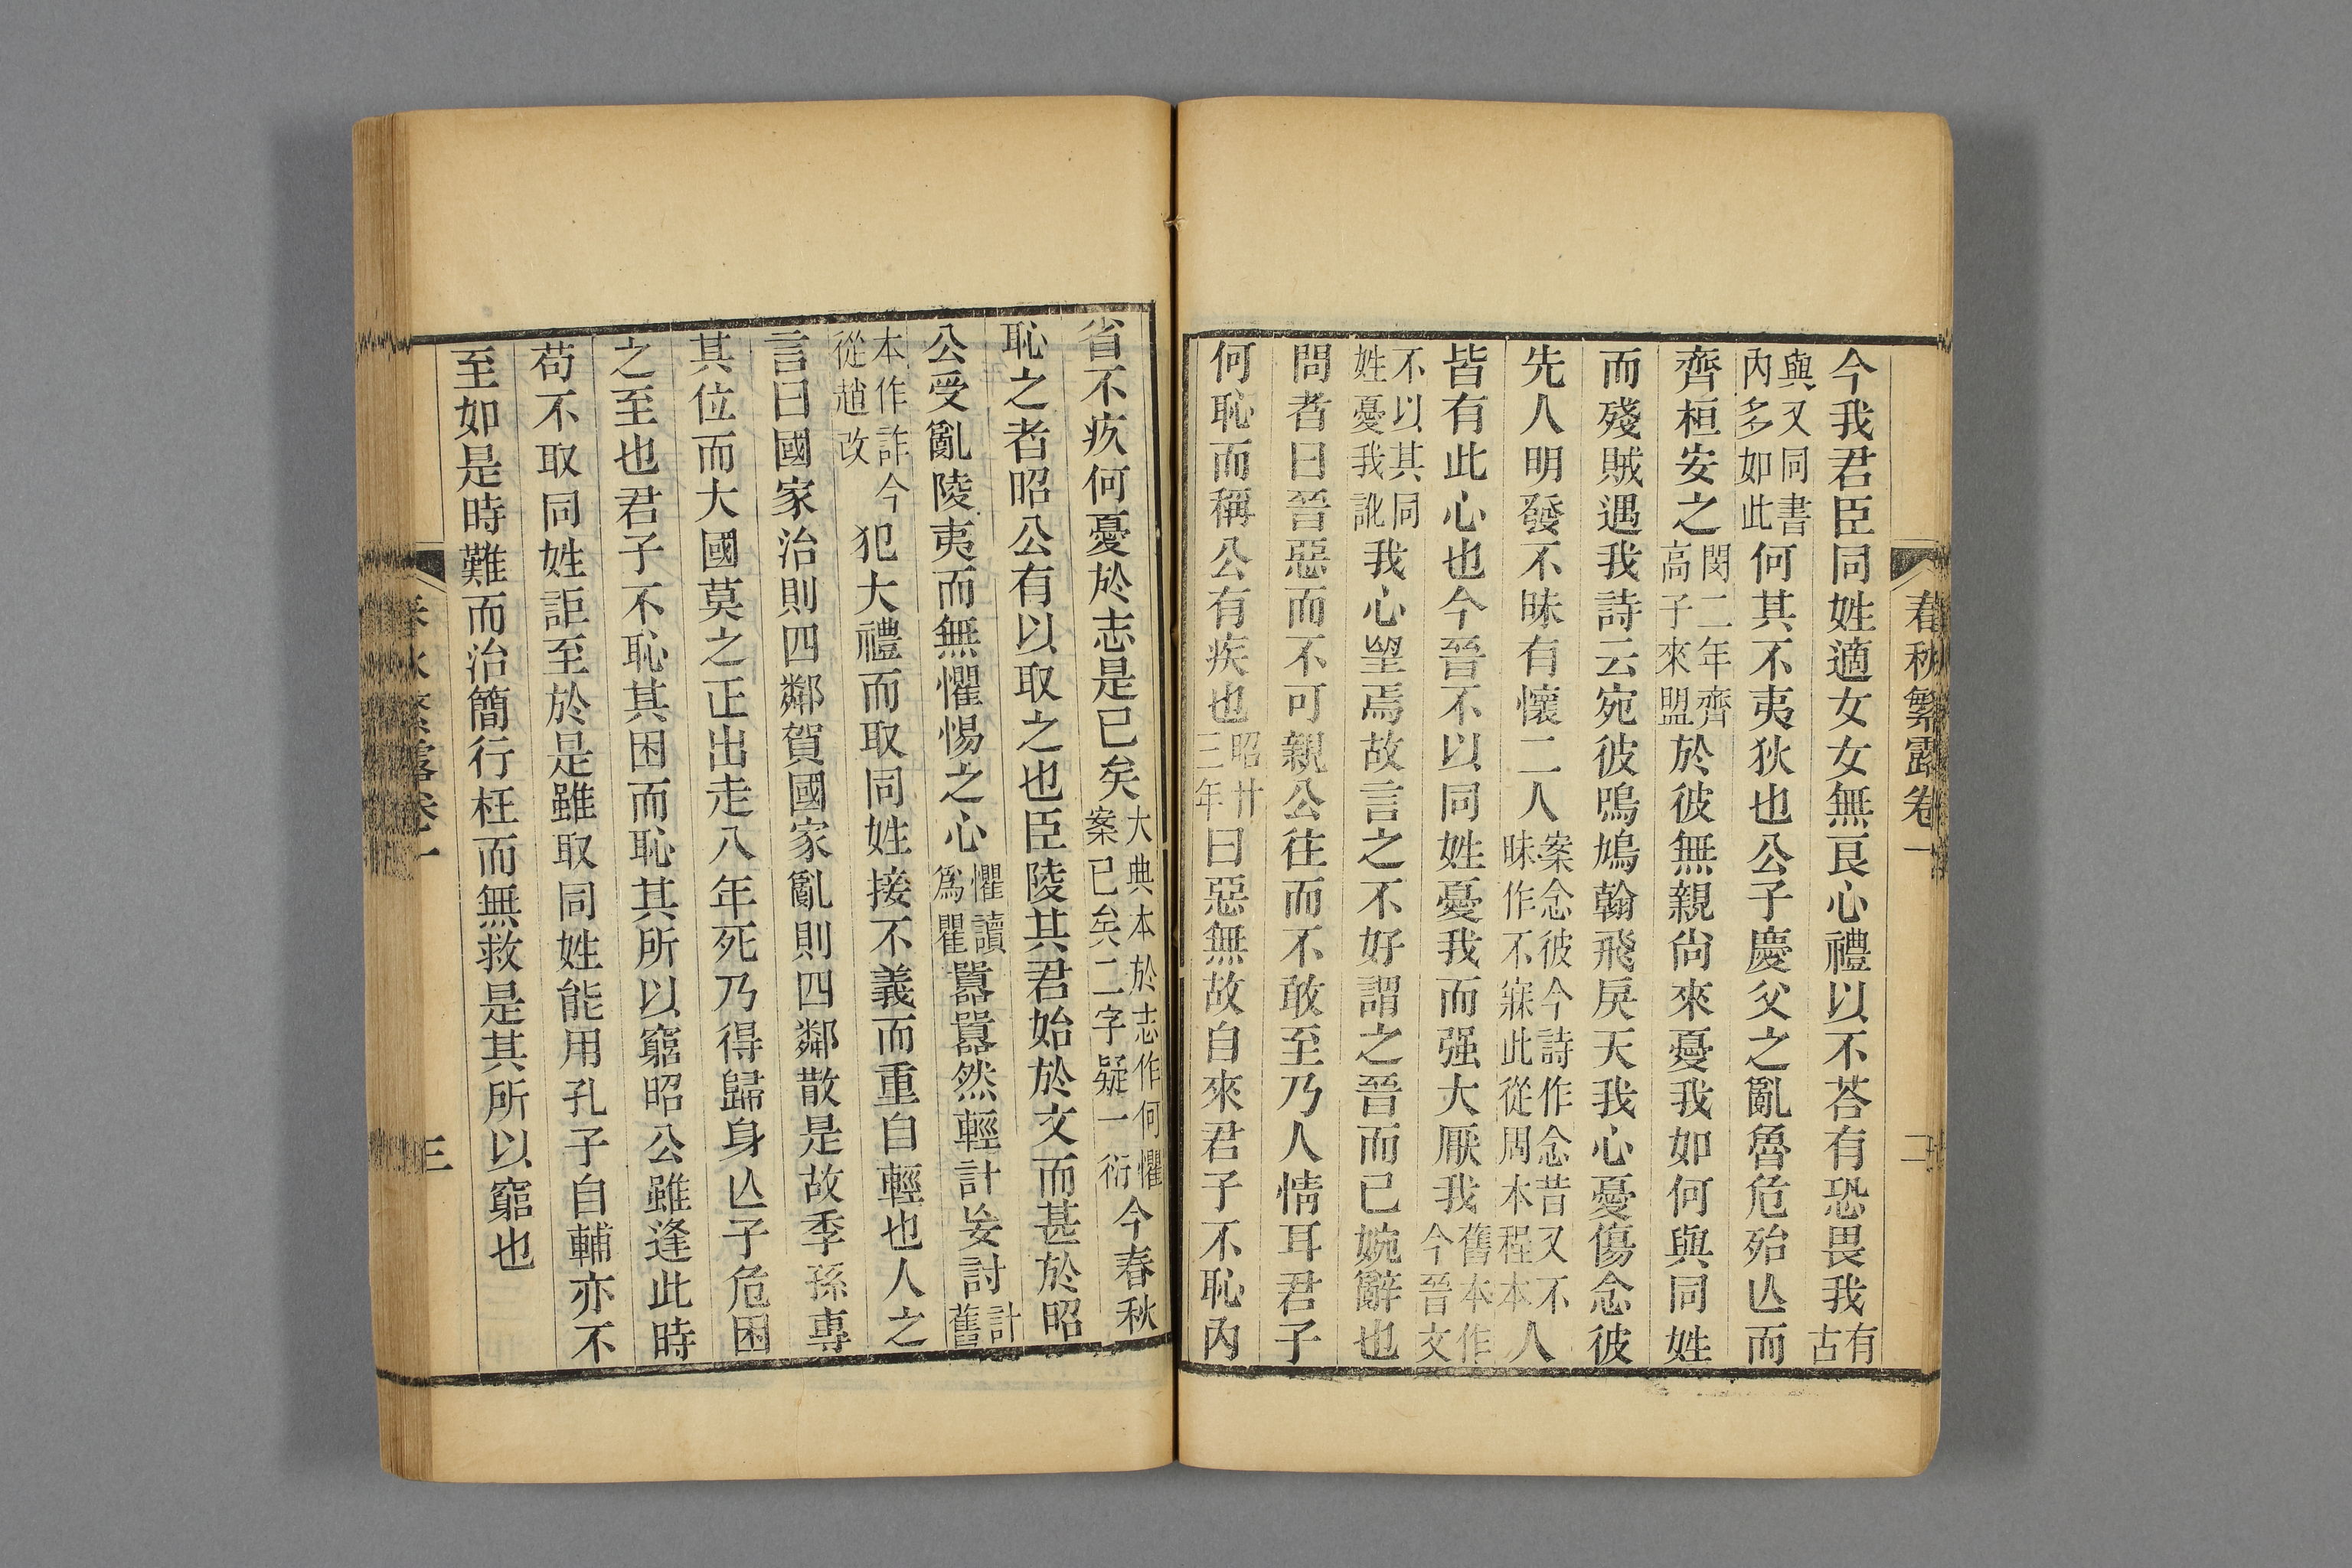 春秋繁露卷一
二
今我君臣同姓適女女無良心禮以不荅有恐畏我有古
與又同書內多如此何其不夷狄也公子慶父之亂魯危殆亾而
齊桓安之閔二年齊高子來盟於彼無親尙來憂我如何與同姓
而殘賊遇我詩云宛彼鳴鳩翰飛戾天我心憂傷念彼
先人明發不昧有懷二人案念彼今詩作念昔又不昧作不寐此從周本程本人
皆有此心也今晉不以同姓憂我而强大厭我舊本作今晉文
不以其同姓憂我訛我心朢焉故言之不好謂之晉而已婉辭也
問者曰晉惡而不可親公往而不敢至乃人情耳君子
何恥而稱公有疾也昭廿三年曰惡無故自來君子不恥內
省不疚何憂於志是已矣大典本於志作何懼案已矣二字疑一衍今春秋
恥之者昭公有以取之也臣陵其君始於文而甚於昭
公受亂陵夷而無懼惕之心懼讀爲瞿囂囂然輕計妄討計舊
本作詐今從趙改犯大禮而取同姓接不義而重自輕也人之
言曰國家治則四鄰賀國家亂則四鄰散是故季孫專
其位而大國莫之正出走八年死乃得歸身亾子危困
之至也君子不恥其困而恥其所以窮昭公雖逢此時
苟不取同姓詎至於是雖取同姓能用孔子自輔亦不
至如是時難而治簡行枉而無救是其所以窮也
春秋繁露卷一
三